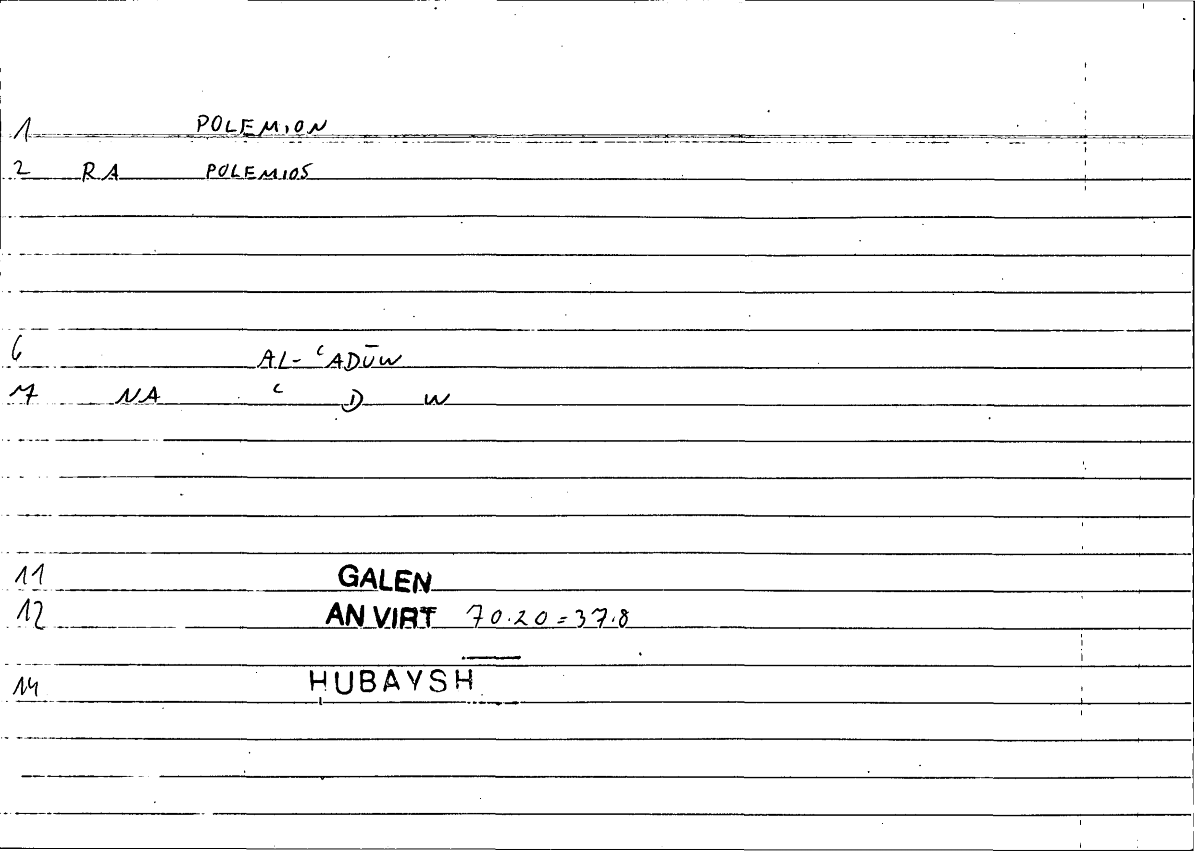 1 POLEMION
2 RA POLEMIOS
6 AL- ʿADŪW
7 NA ʿ D W
11 GALEN
12 AN VIRT 70.20=37.8
14 HUBAYSH